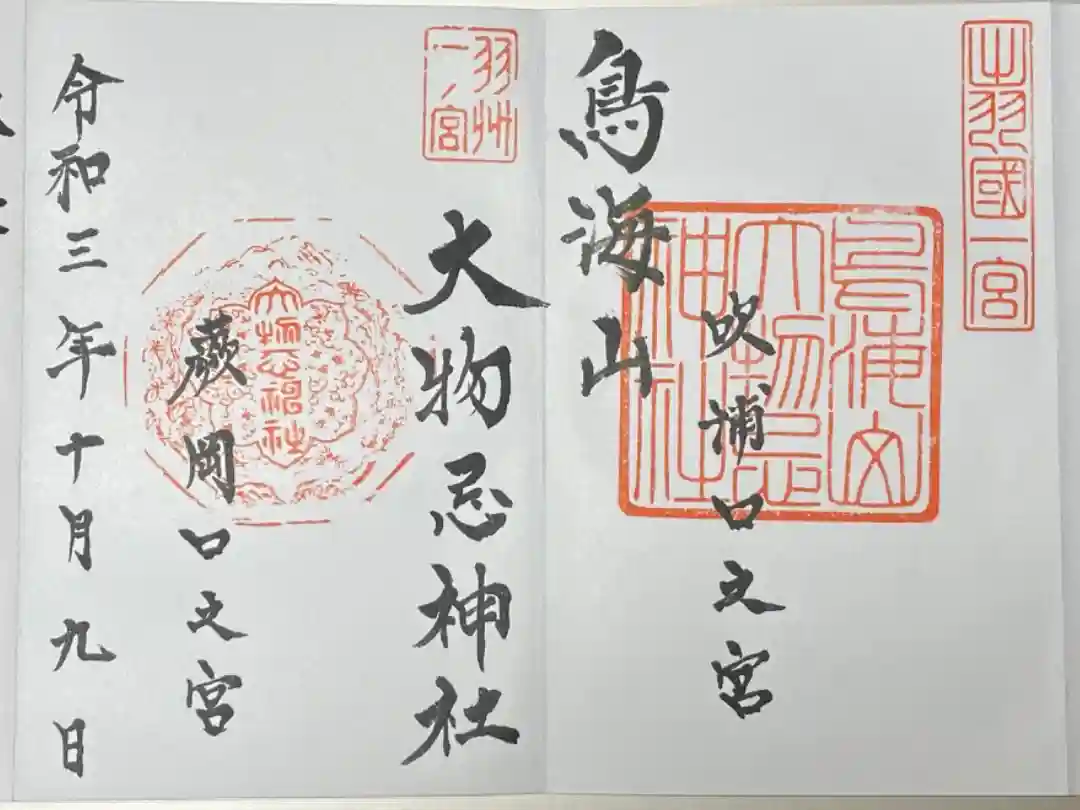 出羽國一宮
鳥海山
大物忌
神社
吹浦口之宮
鳥海山
羽州
一ノ宮
大物忌神社
蕨岡口之宮
大物忌神社
令和三年十月九日